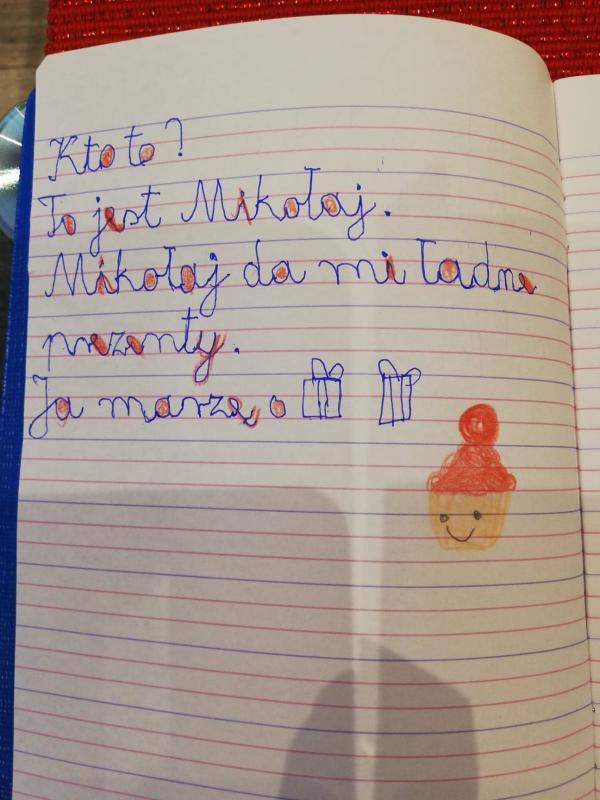 Kto to?
To jest Mikołaj.
Mikołaj da mi ładne
prezenty.
Ja marzę o